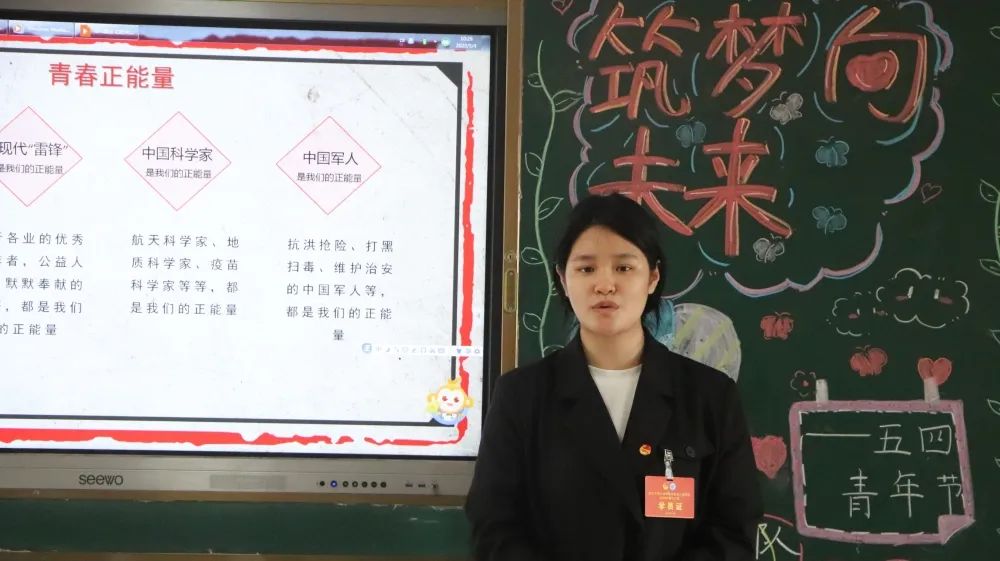 青春正能量
现代“雷锋”
是我们的正能量
各业的优秀
者，公益人
默默奉献的
，都是我们
的正能量
中国科学家
是我们的正能量
航天科学家、地
质科学家、疫苗
科学家等等，都
是我们的正能量
中国军人
是我们的正能量
抗洪抢险、打黑
扫毒、维护治安
的中国军人等，
都是我们的正能
量
seewo
筑梦向
未来
——五四
青年节
队
学员证